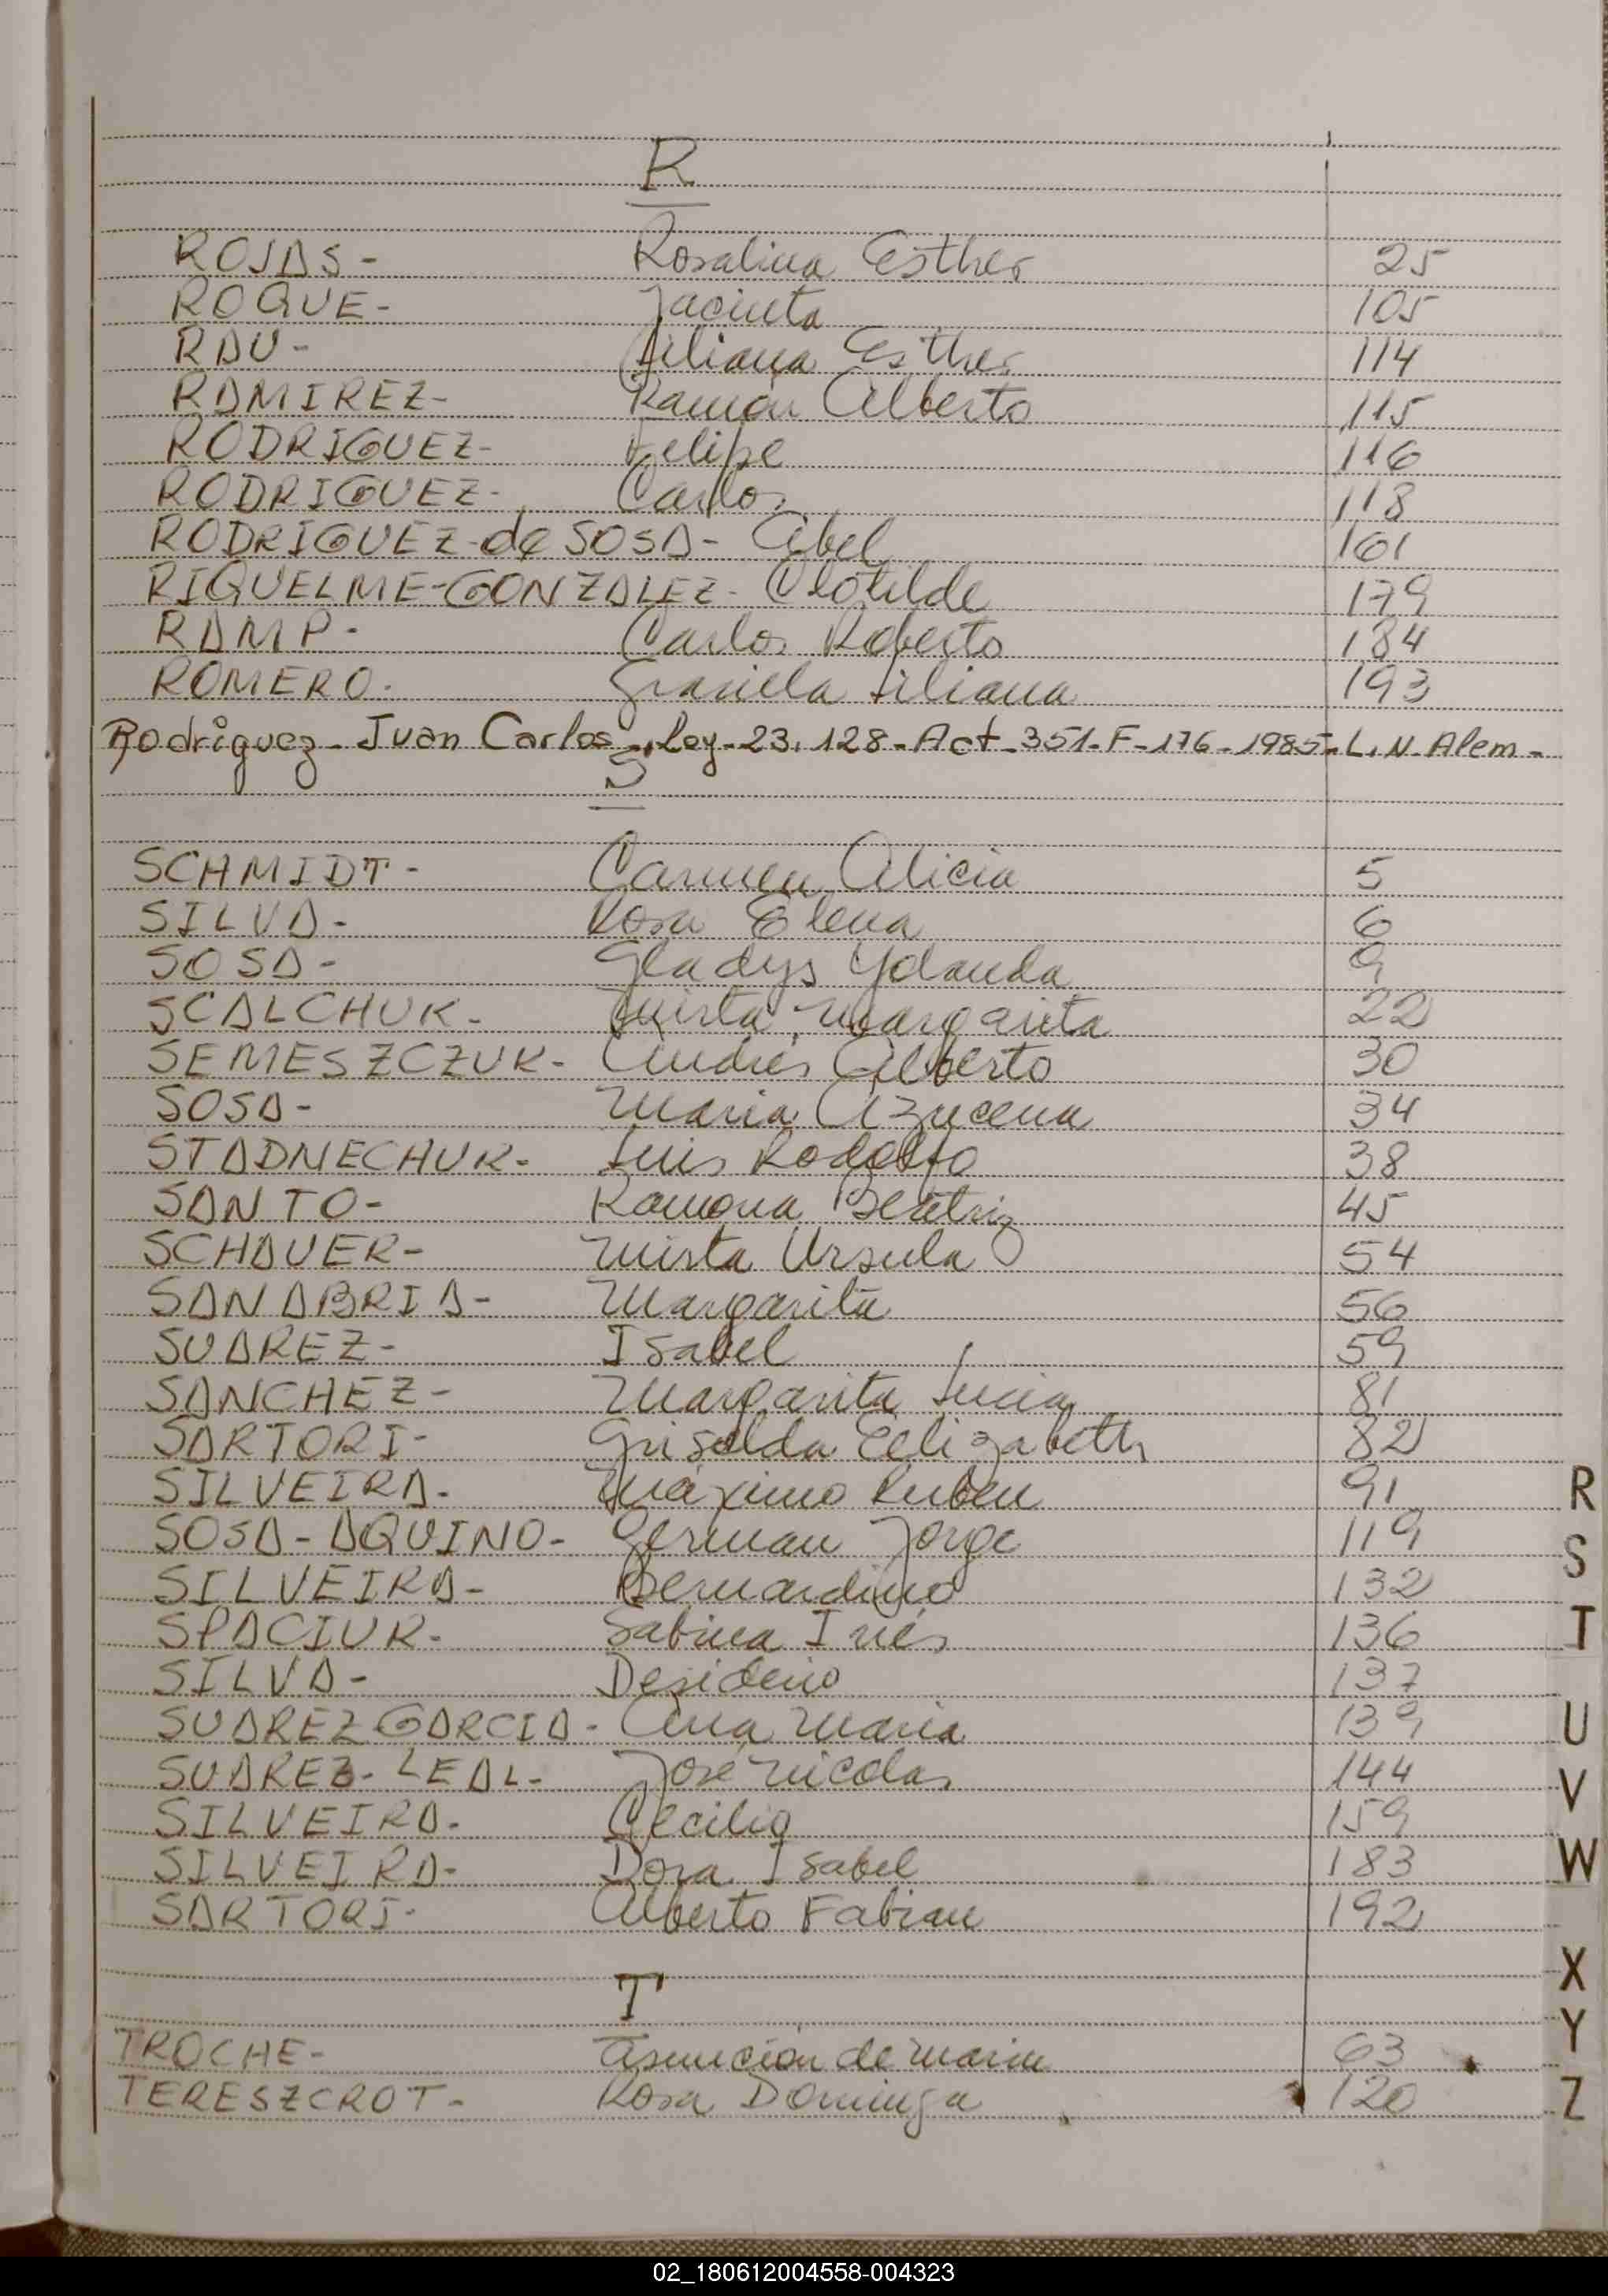 R
ROJAS- Rosalina Esther 25
ROQUE- Jacinta 105
RAU- Liliana Esther 114
RAMIREZ- Ramón Alberto 115
RODRIGUEZ- Felipe 116
RODRIGUEZ- Carlos 118
RODRIGUEZ-de SOSA- Abel 161
RIQUELME-GONZALEZ- Clotilde 179
RAMP- Carlos Roberto 184
ROMERO- Graciela Liliana 193
Rodriguez-Juan Carlos-Ley-23.128-Act-351-F-176-1985-L.N.Alem-
S
SCHMIDT- Carmen Alicia 5
SILVA- Rosa Elena 6
SOSA- Gladys Yolanda 9
SCALCHUK- Mirta Margarita 22
SEMESZCZUK- Andrés Alberto 30
SOSA- Maria Azucena 34
STADNECHUK- Luis Rodolfo 38
SANTO- Ramona Beatriz 45
SCHAUER- Mirta Ursula 54
SANABRIA- Margarita 56
SUAREZ- Isabel 59
SANCHEZ- Margarita Lucía 81
SARTORI- Griselda Elizabeth 82
SILVEIRA- Máximo Ruben 91
SOSA-AQUINO- German Jorge 119
SILVEIRA- Bernardino 132
SPACIUK- Sabina Inés 136
SILVA- Desiderio 137
SUAREZ GARCIA- Ana Maria 139
SUAREZ-LEAL- José Nicolas 144
SILVEIRA- Cecilio 159
SILVEIRA- Dora Isabel 183
SARTORI- Alberto Fabian 192
T
TROCHE- Asunción de Maria 63
TERESZCROT- Rosa Dominga 120
R
S
T
U
V
W
X
Y
Z
02_180612004558-004323